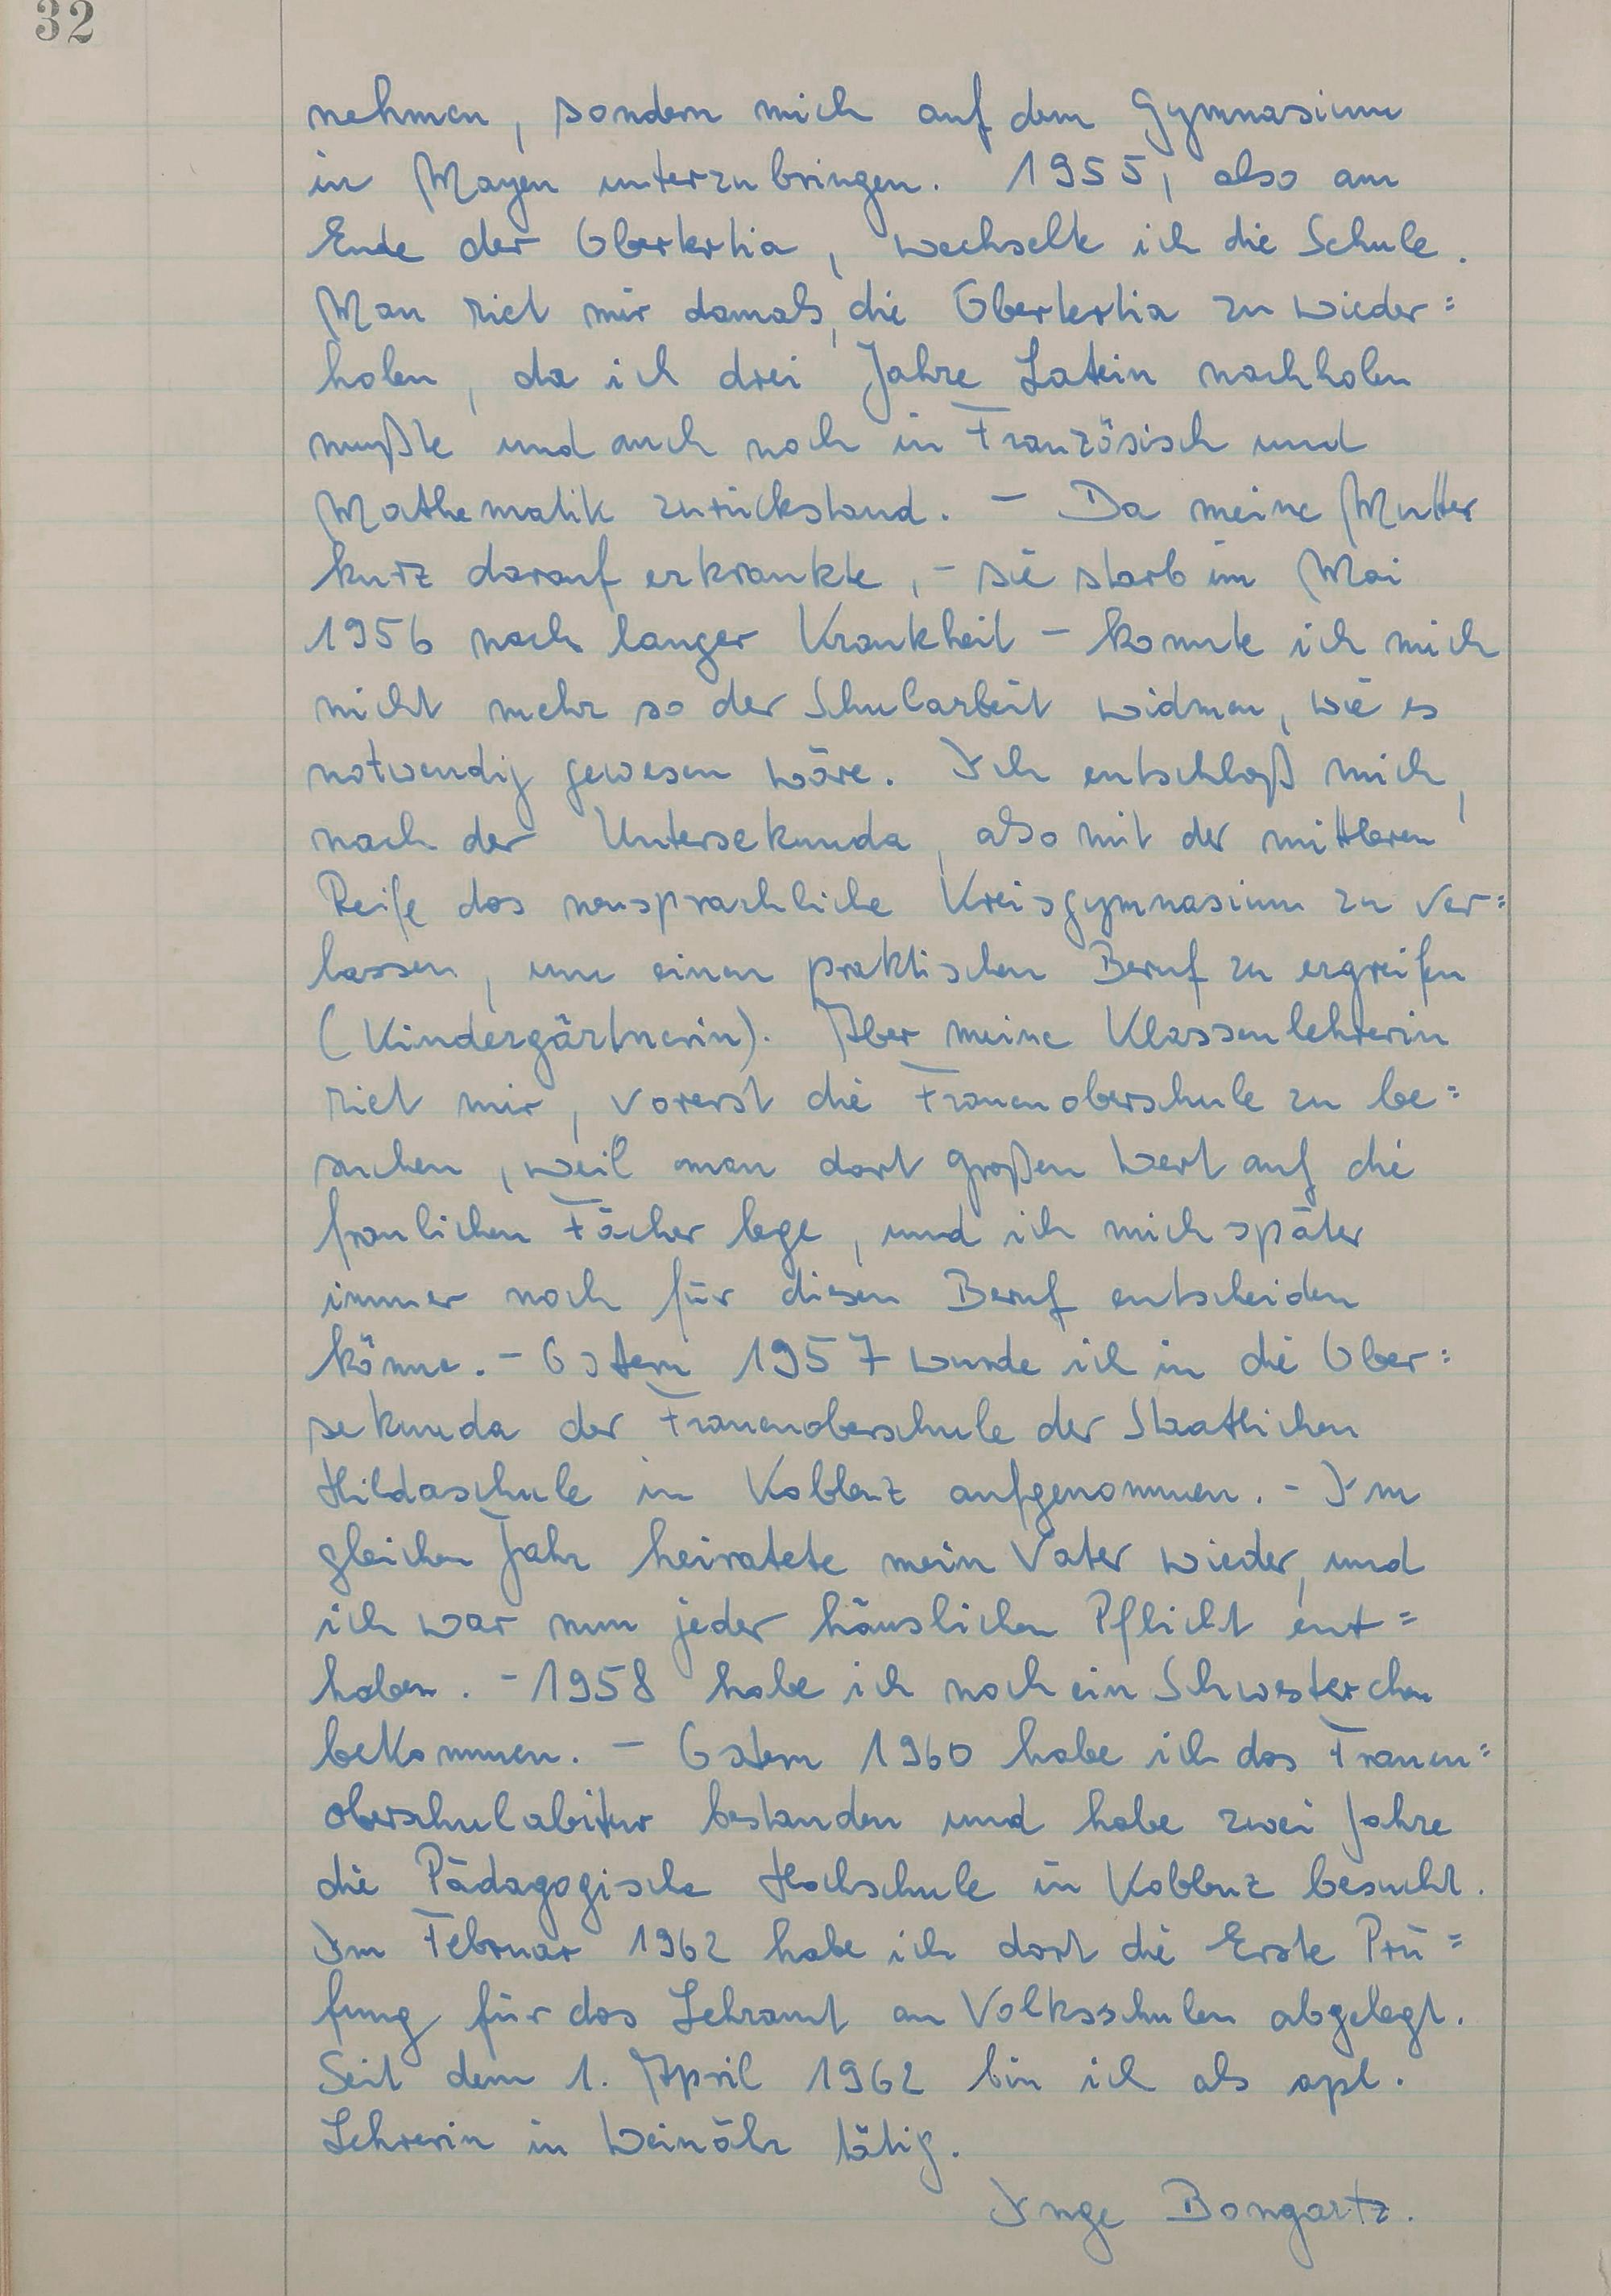 32
nehmen, sondern mich auf dem Gymnasium
in Mayen unterzubringen. 1955, also am
Ende der Obertertia, wechselte ich die Schule.
Man riet mir damals, die Obertertia zu wieder=
holen, da ich drei Jahre Latein nachholen
mußte und auch noch in Französisch und
Mathematik zurückstand. - Da meine Mutter
kurz darauf erkrankte, - sie starb im Mai
1956 nach langer Krankheit - konnte ich mich
nicht mehr so der Schularbeit widmen, wie es
notwendig gewesen wäre. Ich entschloß mich,
nach der Untersekunda, also mit der mittleren
Reife das neusprachliche Kreisgymnasium zu ver=
lassen, um einen praktischen Beruf zu ergreifen
(Kindergärtnerin). Aber meine Klassenlehrerin
riet mir, vorerst die Frauenoberschule zu be=
suchen, weil man dort großen Wert auf die
fraulichen Fächer lege, und ich mich später
immer noch für diesen Beruf entscheiden
könne. - Ostern 1957 wurde ich in die Ober=
sekunda der Frauenoberschule der Staatlichen
Hildaschule in Koblenz aufgenommen. - Im
gleichen Jahr heiratete mein Vater wieder, und
ich war nun jeder häuslichen Pflicht ent=
hoben. - 1958 habe ich noch ein Schwesterchen
bekommen. - Ostern 1960 habe ich das Frauen=
oberschulabitur bestanden und habe zwei Jahre
die Pädagogische Hochschule in Koblenz besucht.
Im Februar 1962 habe ich dort die Erste Prü=
fung für das Lehramt an Volksschulen abgelegt.
Seit dem 1. April 1962 bin ich als apl.
Lehrerin in Weinähr tätig.
Inge Bongartz.